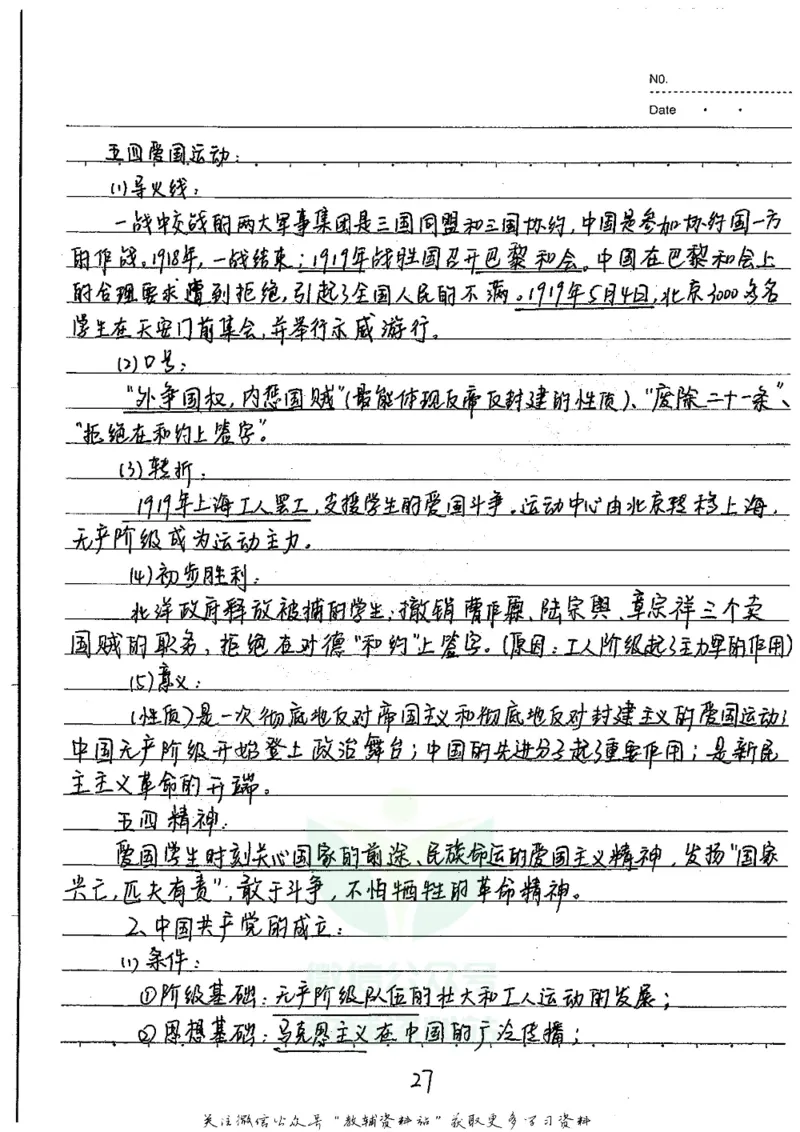 NO.
Date
五四爱国运动：
(1)导火线：
一战中交战的两大军事集团是三国同盟和三国协约，中国是参加协约国一方
的作战。1918年，一战结束；1919年战胜国召开巴黎和会。中国在巴黎和会上
的合理要求遭到拒绝，引起了全国人民的不满。1919年5月4日，北京3000多名
学生在天安门前集会，并举行示威游行。
(2)口号：
“外争国权，内惩国贼”(最能体现反帝反封建的性质)、“废除二十一条”、
“拒绝在和约上签字”。
(3)转折：
1919年上海工人罢工，支援学生的爱国斗争。运动中心由北京转移上海，
无产阶级成为运动主力。
(4)初步胜利：
北洋政府释放被捕的学生；撤销曹汝霖、陆宗舆、章宗祥三个卖
国贼的职务，拒绝在对德“和约”上签字。(原因：工人阶级起了主力军的作用)
(5)意义：
(性质)是一次彻底地反对帝国主义和彻底地反对封建主义的爱国运动；
中国无产阶级开始登上政治舞台；中国的先进分子起了重要作用；是新民
主主义革命的开端。
五四精神：
爱国学生时刻关心国家的前途、民族命运的爱国主义精神，发扬“国家
兴亡，匹夫有责”；敢于斗争，不怕牺牲的革命精神。
2、中国共产党的成立：
(1)条件：
①阶级基础：无产阶级队伍的壮大和工人运动的发展；
②思想基础：马克思主义在中国的广泛传播；
27
关注微信公众号“教辅资料站”获取更多学习资料